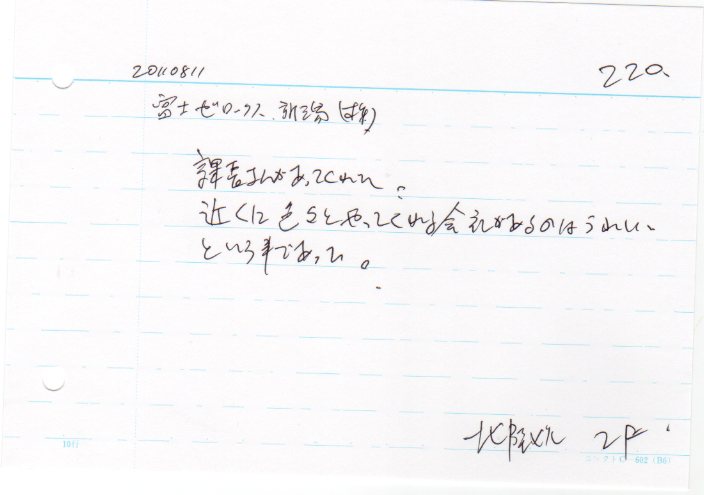 20110811
220.
富士ゼロックス新潟(株)
課長さんがあってくれた。
近くに色々とやってくれる会社があるのはうれしい、
という事であった。
2F
1011
コレクト C-602 (B6)